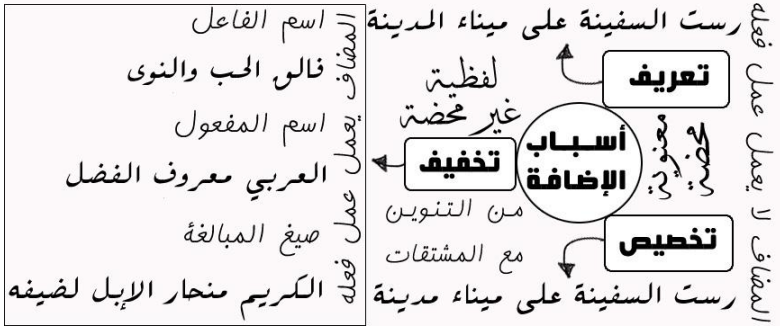 رست السفينة على ميناء المدينة
تعريف
المضاف لا يعمل عمل فعله
معنوية
محضة
أسباب
الإضافة
لفظية
غير محضة
تخفيف
من التنوين
مع المشتقات
تخصيص
رست السفينة على ميناء مدينة
المضاف يعمل عمل فعله
اسم الفاعل
فالق الحب والنوى
اسم المفعول
العربي معروف الفضل
صيغ المبالغة
الكريم منحار الإبل لضيفه